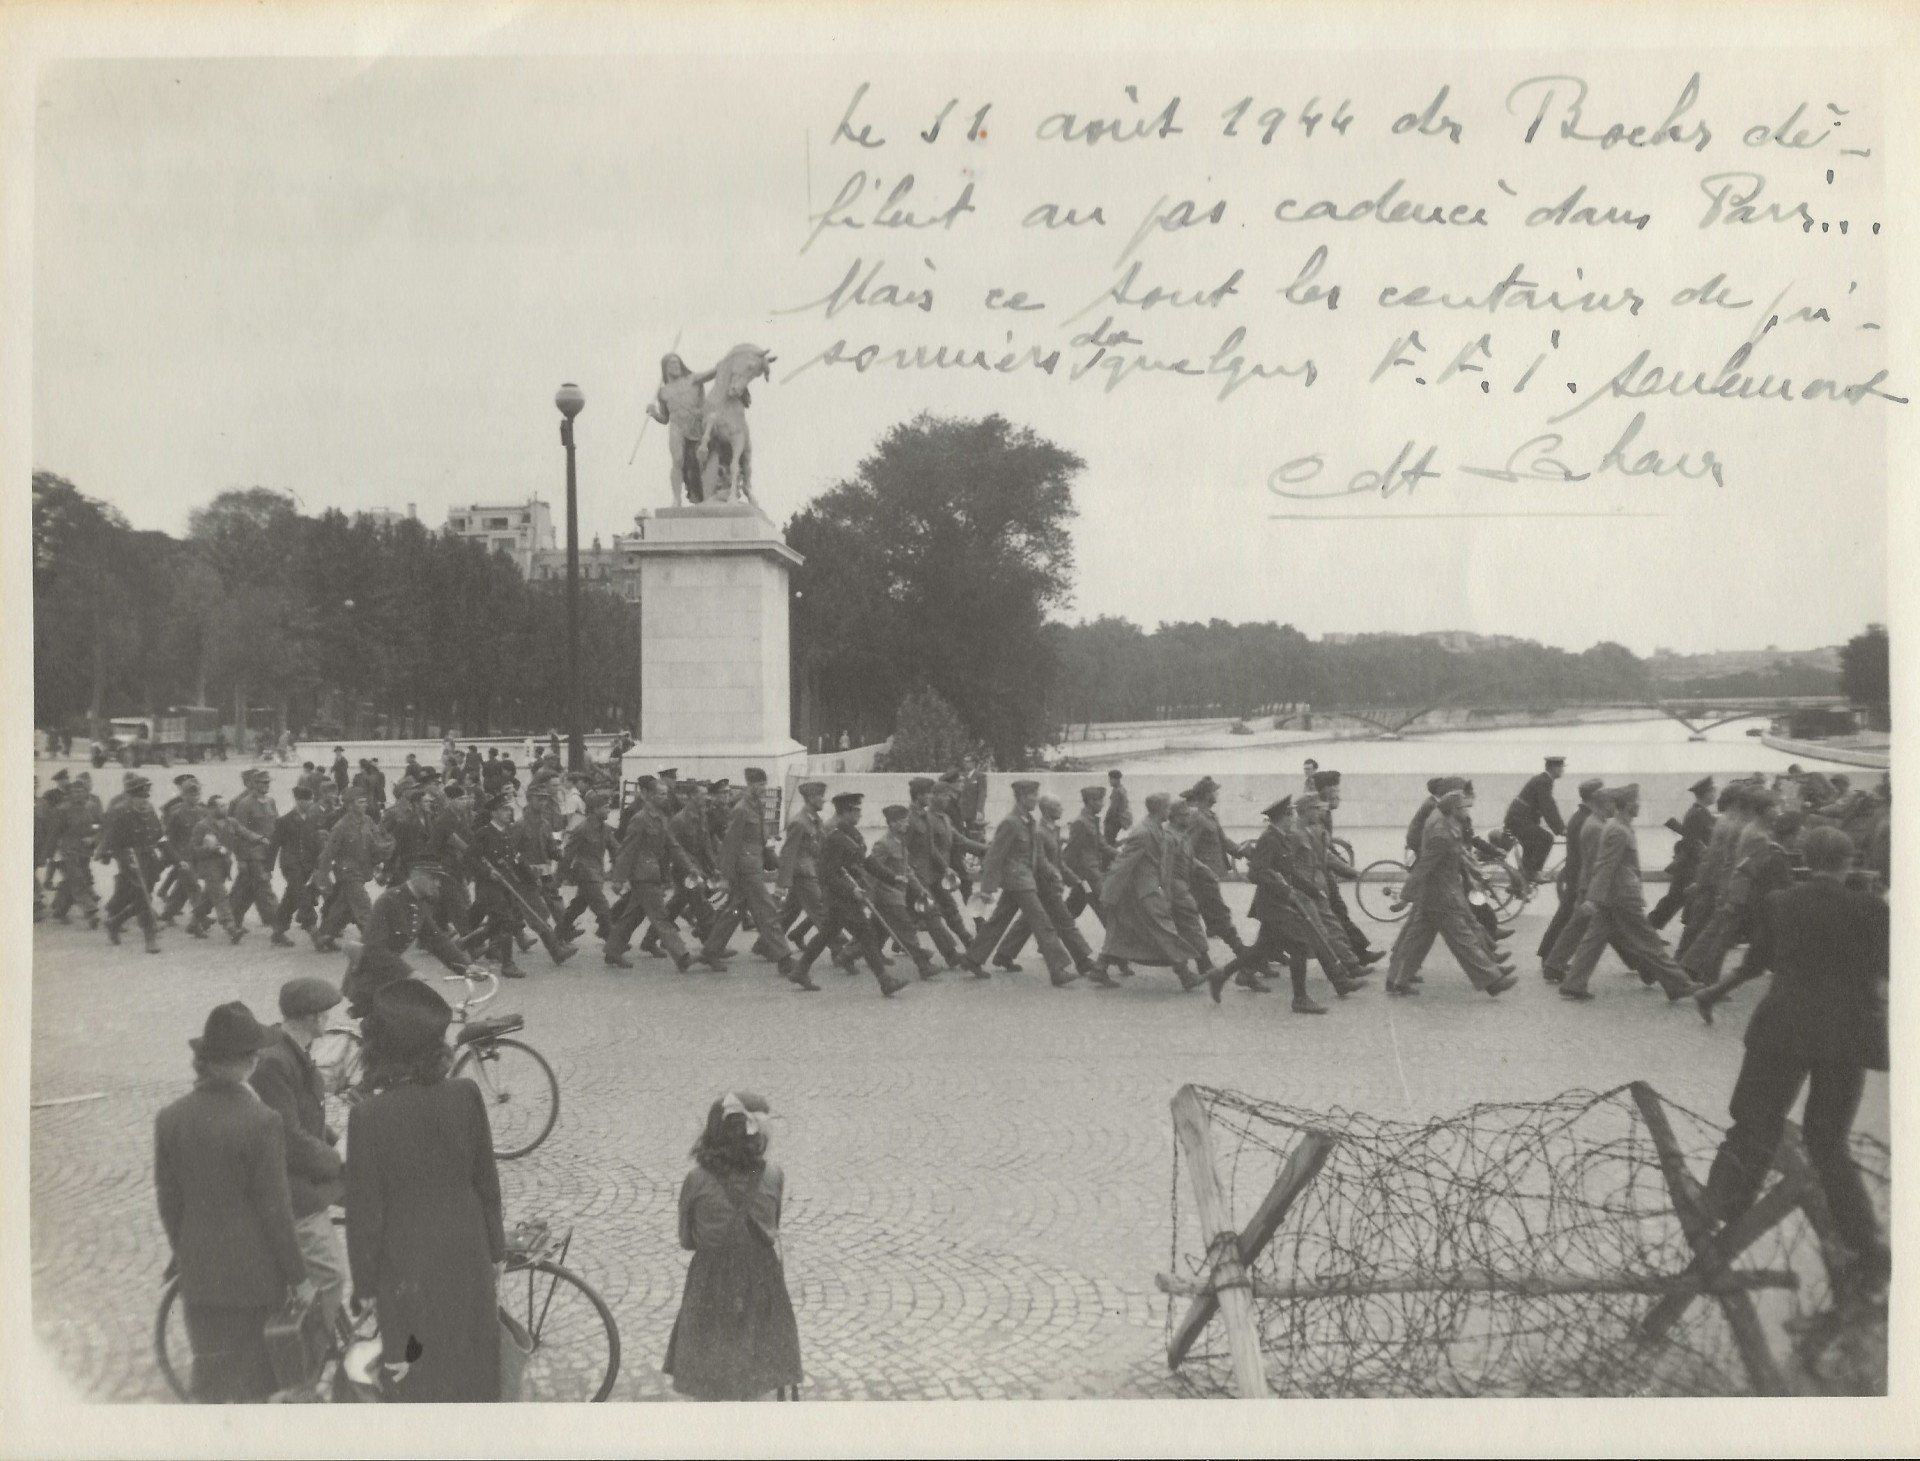 Le 31 août 1944 des Bochs dé-
filent au pas cadencé dans Paris...
Mais ce sont les centaines de pri-
sonniers de quelques F.F.I. seulement
Cdt